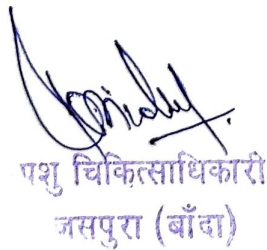 पशु चिकित्साधिकारी
जसपुरा (बाँदा)